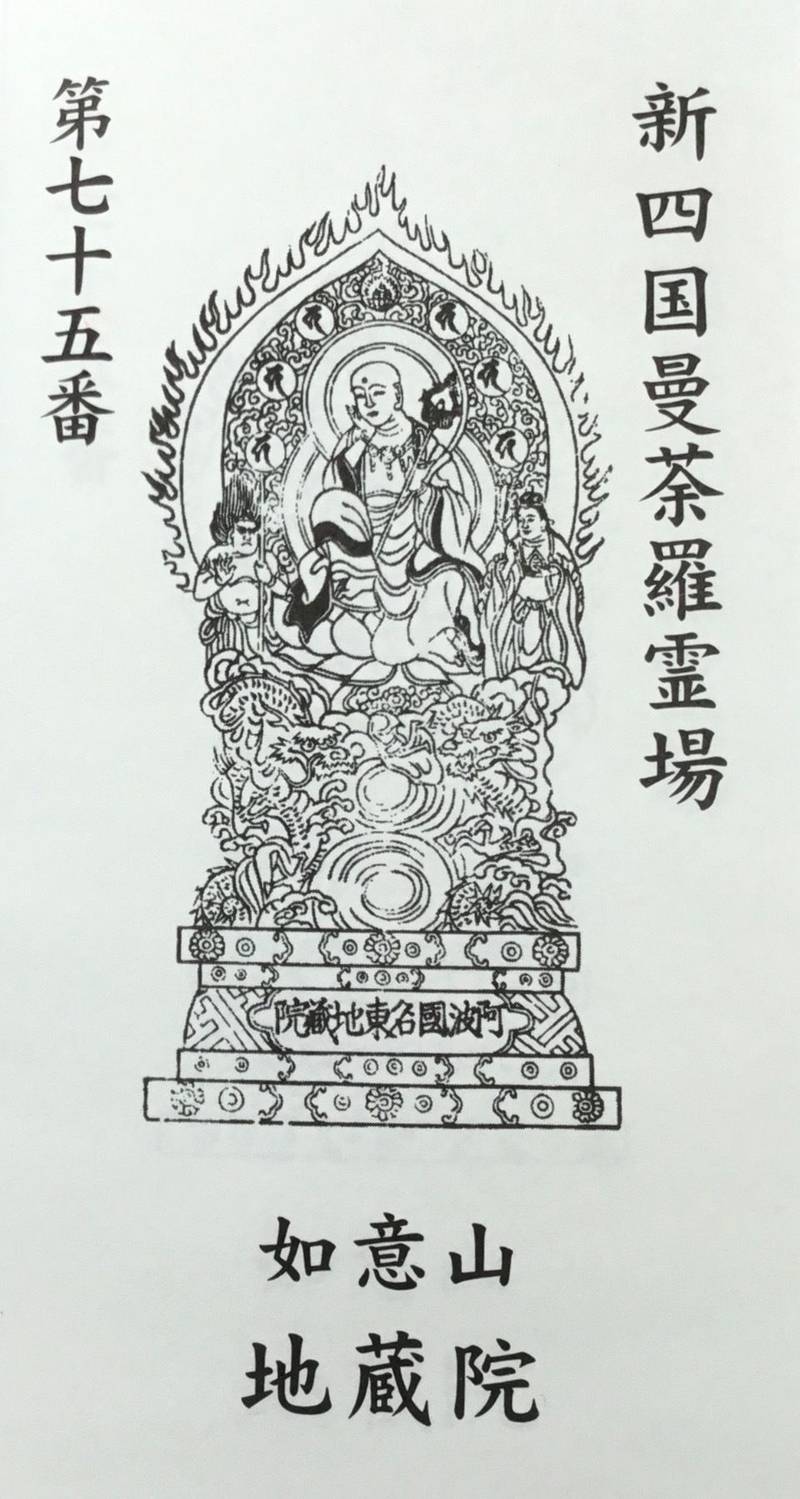 新四国曼荼羅霊場
第七十五番
阿波國名東地藏院
如意山
地蔵院